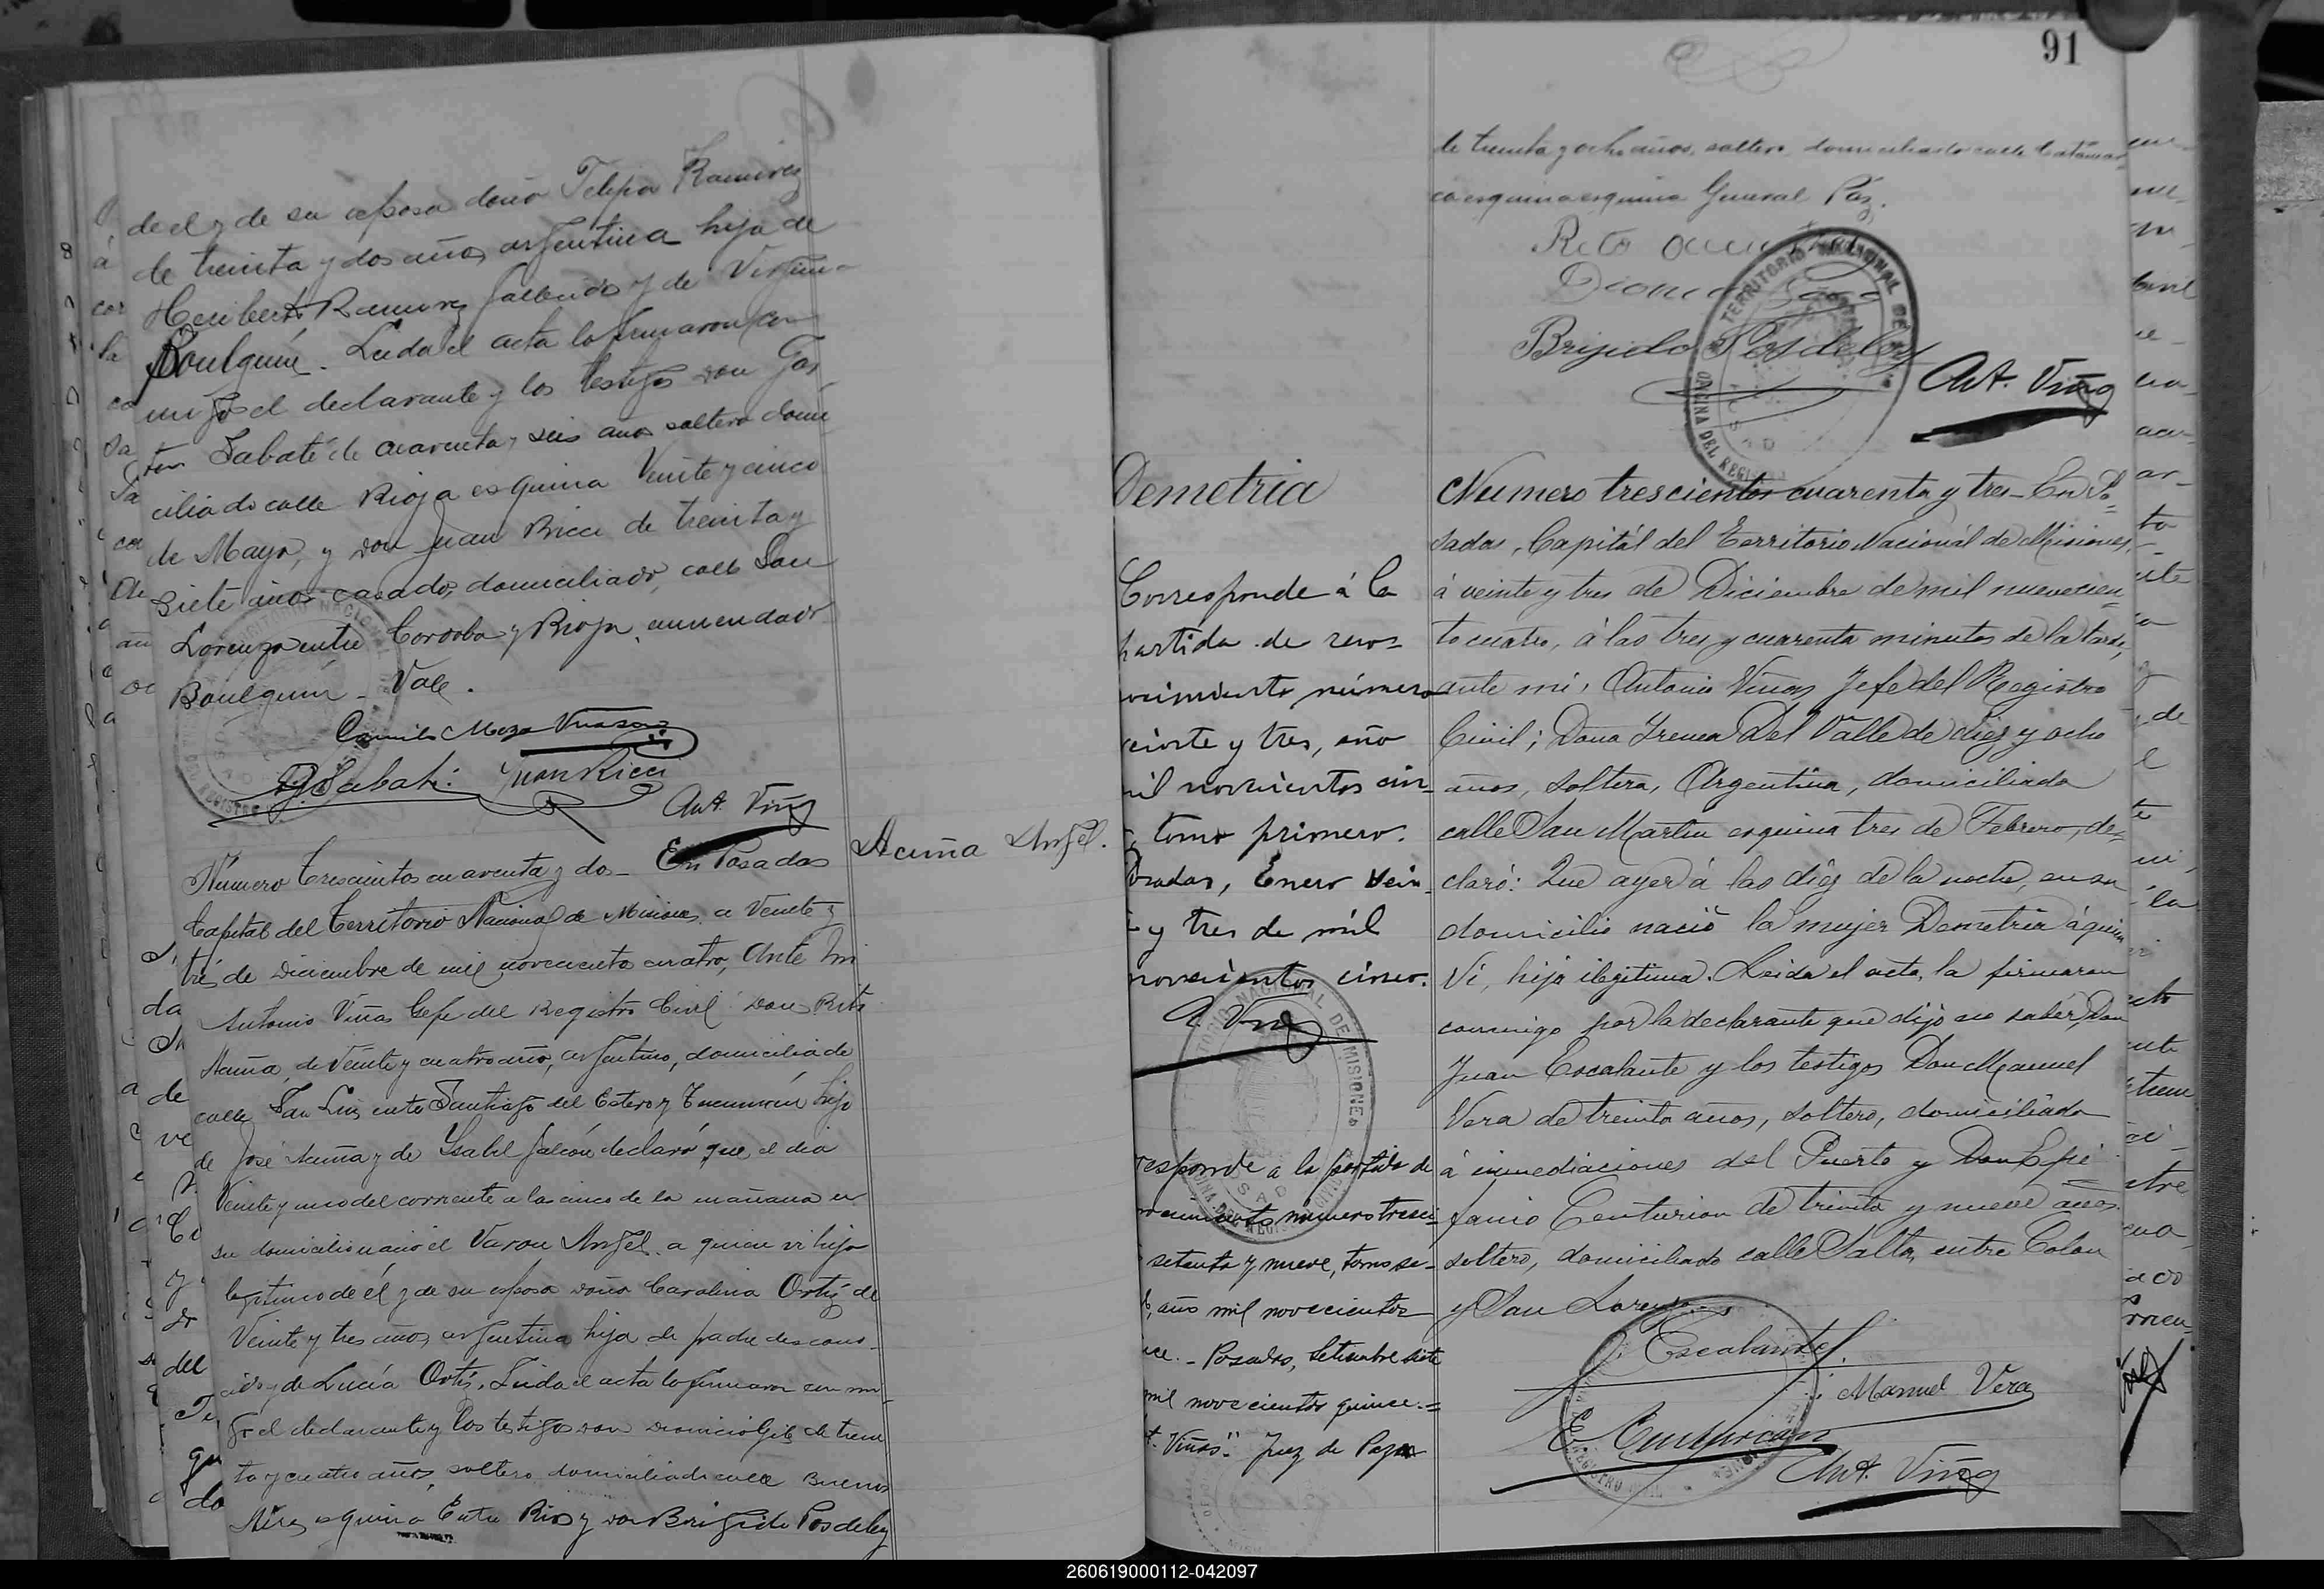 de el y de su esposa doña Felipa Ramirez
de treinta y dos años argentina hija de
Heriberto Ramirez fallecido y de Virginia
Boulquin. Leida el acta la firmaron con
migo el declarante y los testigos don Gas
ton Sabaté de cuarenta y seis años soltero domi
ciliado calle Rioja esquina Veinte y cinco
de Mayo, y don Juan Ricci de treinta y
siete años casado, domiciliado, calle San
Lorenzo entre Cordoba y Rioja, enmendado
Boulquin - Vale.
Camilo Meza
G. Sabaté
Juan Ricci
Ant. Viñas
Acuña Angel.
Número Trescientos cuarenta y dos - En Posadas
Capital del Territorio Nacional de Misiones a Veinte y
tres de Diciembre de mil novecientos cuatro, Ante mi
Antonio Viñas Gefe del Registro Civil Don Rito
Acuña, de Veinte y cuatro años, argentino, domiciliado
calle San Luis entre Santiago del Estero y Tucumán hijo
de José Acuña y de Ysabel Falcón declaró que el dia
Veinte y uno del corriente a las cinco de la mañana en
su domicilio nació el Varon Angel a quien vi hijo
legitimo de él y de su esposa doña Carolina Ortiz de
Veinte y tres años, argentina hija de padre descono-
cido y de Lucía Ortiz. Leida el acta la firmaron con mi-
go el declarante y los testigos don Dionicio Gil de trein
ta y cuatro años, soltero domiciliado calle Buenos
Aires esquina Entre Rios y don Brigido Posdeley
91
de treinta y ocho años, soltero, domiciliado calle Catamar
ca esquina esquina General Paz.
Rito Acuña
Dionicio Gil
Brijido Posdeley
Ant. Viñas
TERRITORIO NACIONAL DE
OFICINA DEL REGISTRO
Demetria
Numero trescientos cuarenta y tres - En Po=
sadas, Capitál del Territorio Nacionál de Misiones,
á veinte y tres de Diciembre de mil novecien=
to cuatro, á las tres y cuarenta minutos de la tarde,
ante mi, Antonio Viñas Jefe del Registro
Civil; Doña Irenea Del Valle de diez y ocho
años, soltera, Argentina, domiciliada
calle San Martin esquina tres de Febrero, de=
claró: Que ayer á las diez de la noche, en su
domicilio nació la mujer Demetria á quien
Vi, hija ilegitima. Leida el acta, la firmaron
conmigo por la declarante que dijo no saber, Don
Juan Escalante y los testigos Don Manuel
Vera de treinta años, soltero, domiciliado
á inmediaciones del Puerto y Don Epi
fanio Centurion de treinta y nueve años
soltero, domiciliado calle Salta, entre Colon
y San Lorenzo.
J. Escalante
Manuel Vera
E. Centurion
Ant. Viñas
Corresponde á la
partida de reco=
nocimiento número
veinte y tres, año
mil novecientos cin-
co, tomo primero.
Posadas, Enero vein-
te y tres de mil
novecientos cinco.
A. Viñas
TORIO NACIONAL DE MISIONES
responde a la partida de
nocimiento número tresci-
setenta y nueve, tomo se-
año mil novecientos
ce. - Posadas, Setiembre siete
mil novecientos quince. =
"t. Viñas". Juez de Paz
260619000112-042097